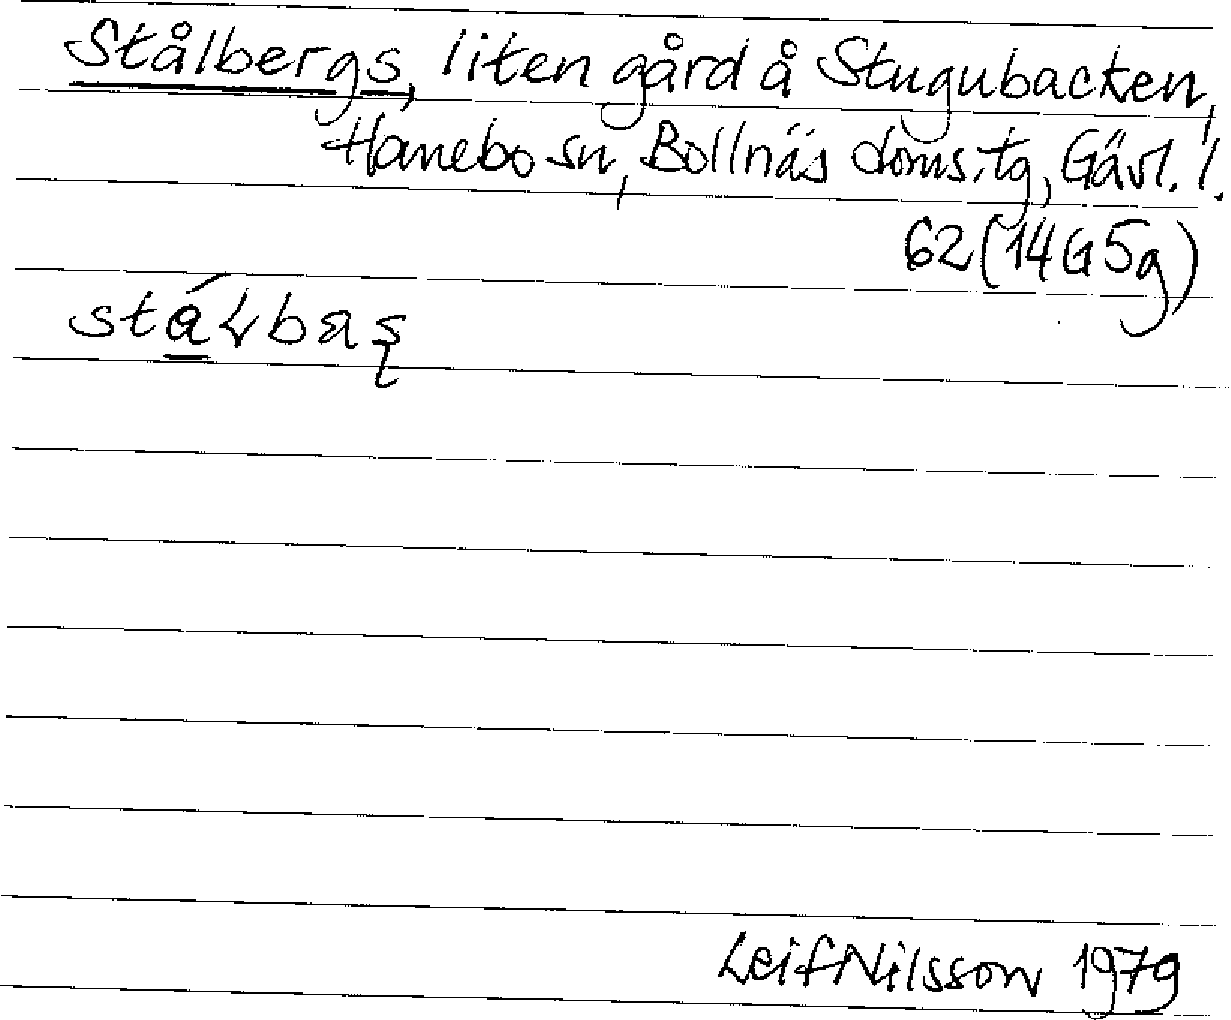 Stålbergs, liten gård å Stugubacken,
Hanebo sn, Bollnäs doms.tg, Gävl. l.
62 (14G5g)
Leif Nilsson 1979